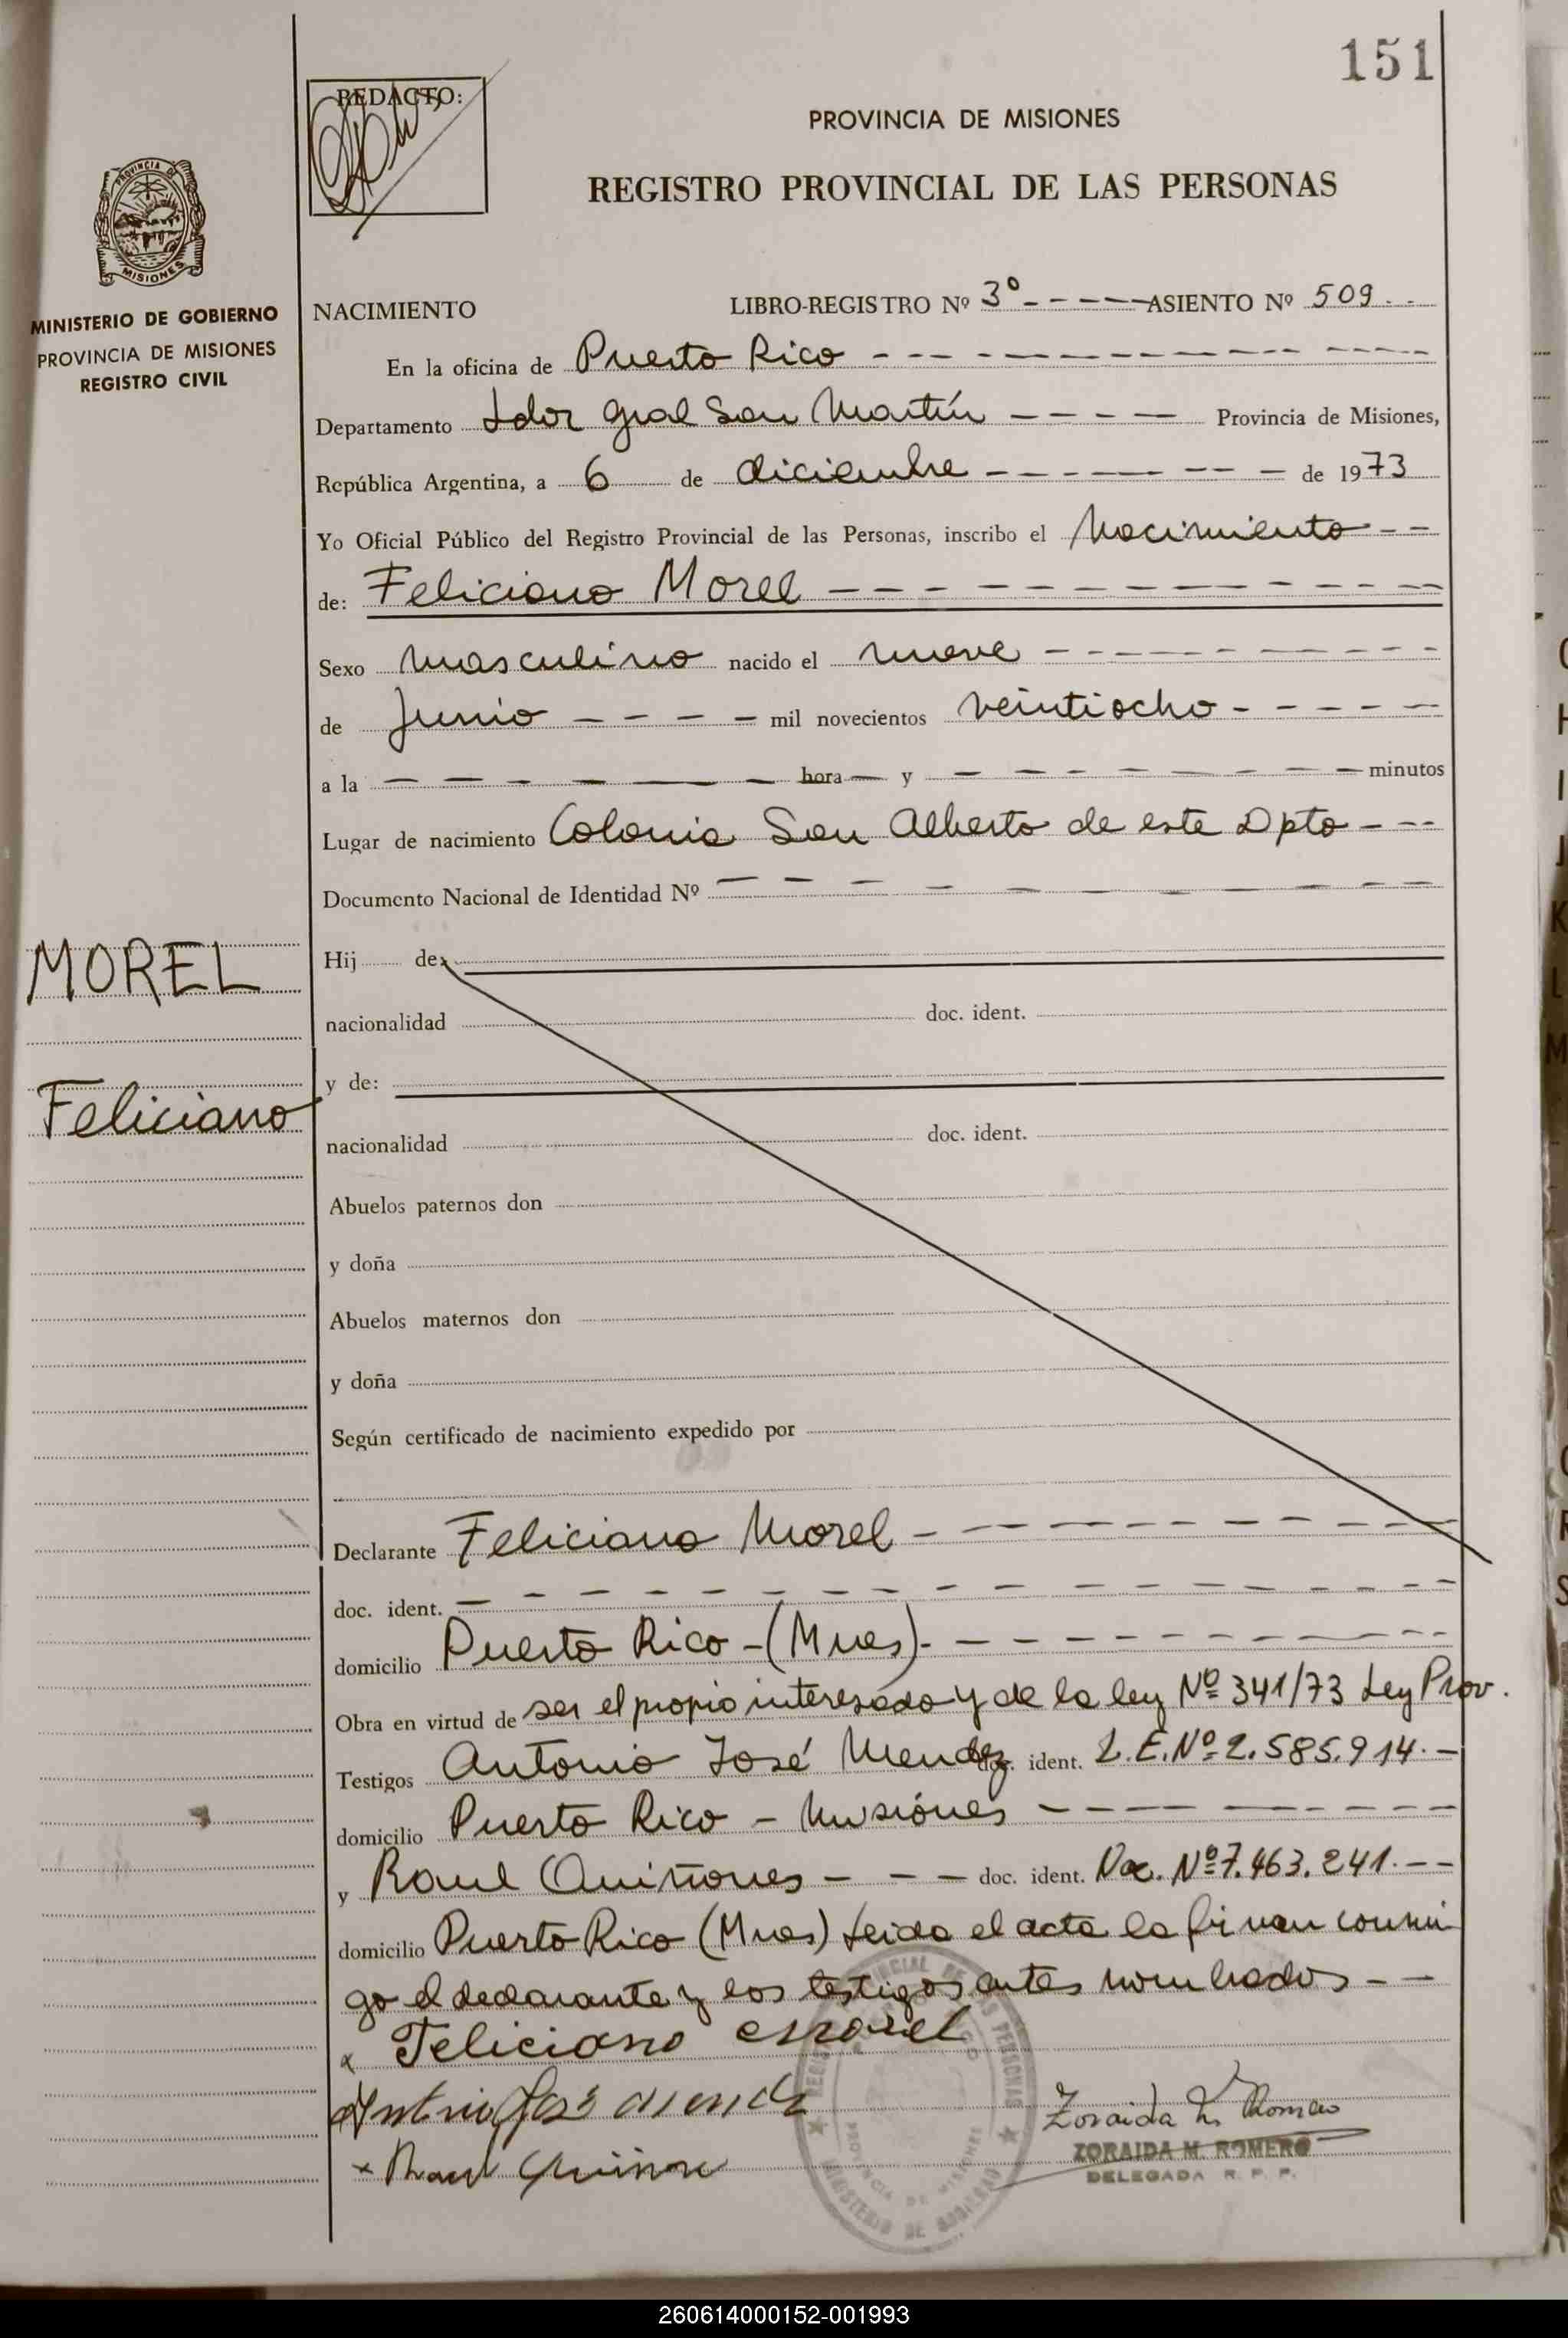 151
REDACTO:
PROVINCIA DE MISIONES
REGISTRO PROVINCIAL DE LAS PERSONAS
PROVINCIA DE
MISIONES
MINISTERIO DE GOBIERNO
PROVINCIA DE MISIONES
REGISTRO CIVIL
NACIMIENTO LIBRO-REGISTRO Nº 3º - - - - - ASIENTO Nº 509 . .
En la oficina de Puerto Rico - - - - - - - - - -
Departamento Ldor Gral San Martín - - - - - Provincia de Misiones,
República Argentina, a 6 de diciembre - - - - - - - de 1973
Yo Oficial Público del Registro Provincial de las Personas, inscribo el Nacimiento - -
de: Feliciano Morel - - - - - - - - - - -
Sexo masculino nacido el nueve - - - - - - - - - -
de Junio - - - - - mil novecientos veintiocho - - - - -
a la - - - - - - hora - y - - - - - - - - minutos
Lugar de nacimiento Colonia San Alberto de este Dpto - - -
Documento Nacional de Identidad Nº - - - - - - - - -
MOREL
Feliciano
Hij de:
nacionalidad doc. ident.
y de:
nacionalidad doc. ident.
Abuelos paternos don
y doña
Abuelos maternos don
y doña
Según certificado de nacimiento expedido por
Declarante Feliciano Morel - - - - - - - - - -
doc. ident. - - - - - - - - - - - - - - -
domicilio Puerto Rico - (Mnes) - - - - - - - - - -
Obra en virtud de ser el propio interesado y de la ley Nº 341/73 Ley Prov.
Testigos Antonio José Mendez doc. ident. L.E.Nº 2.585.914. -
domicilio Puerto Rico - Misiónes - - - - - - - - -
y Raul Quiñones - - - - doc. ident. Doc. Nº 7.463.241. - -
domicilio Puerto Rico (Mnes) Leida el acta la firman conmi
go el declarante y los testigos antes nombrados - -
x Feliciano Morel
Antonio José Mendez
x Raul Quiñone
Zoraida M. Romero
ZORAIDA M. ROMERO
DELEGADA R. P. P.
PROVINCIA DE MISIONES
MINISTERIO DE GOBIERNO
260614000152-001993